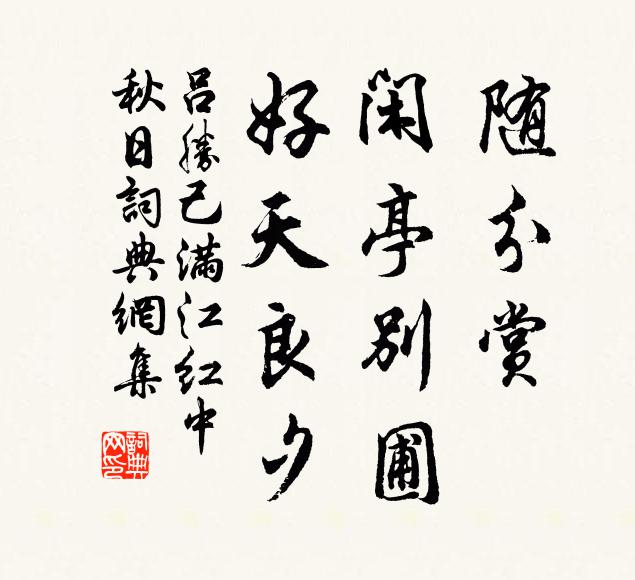 随分赏
闲亭别圃
好天良夕
吕勝己满江红中
秋日詞典網集
詞典网印